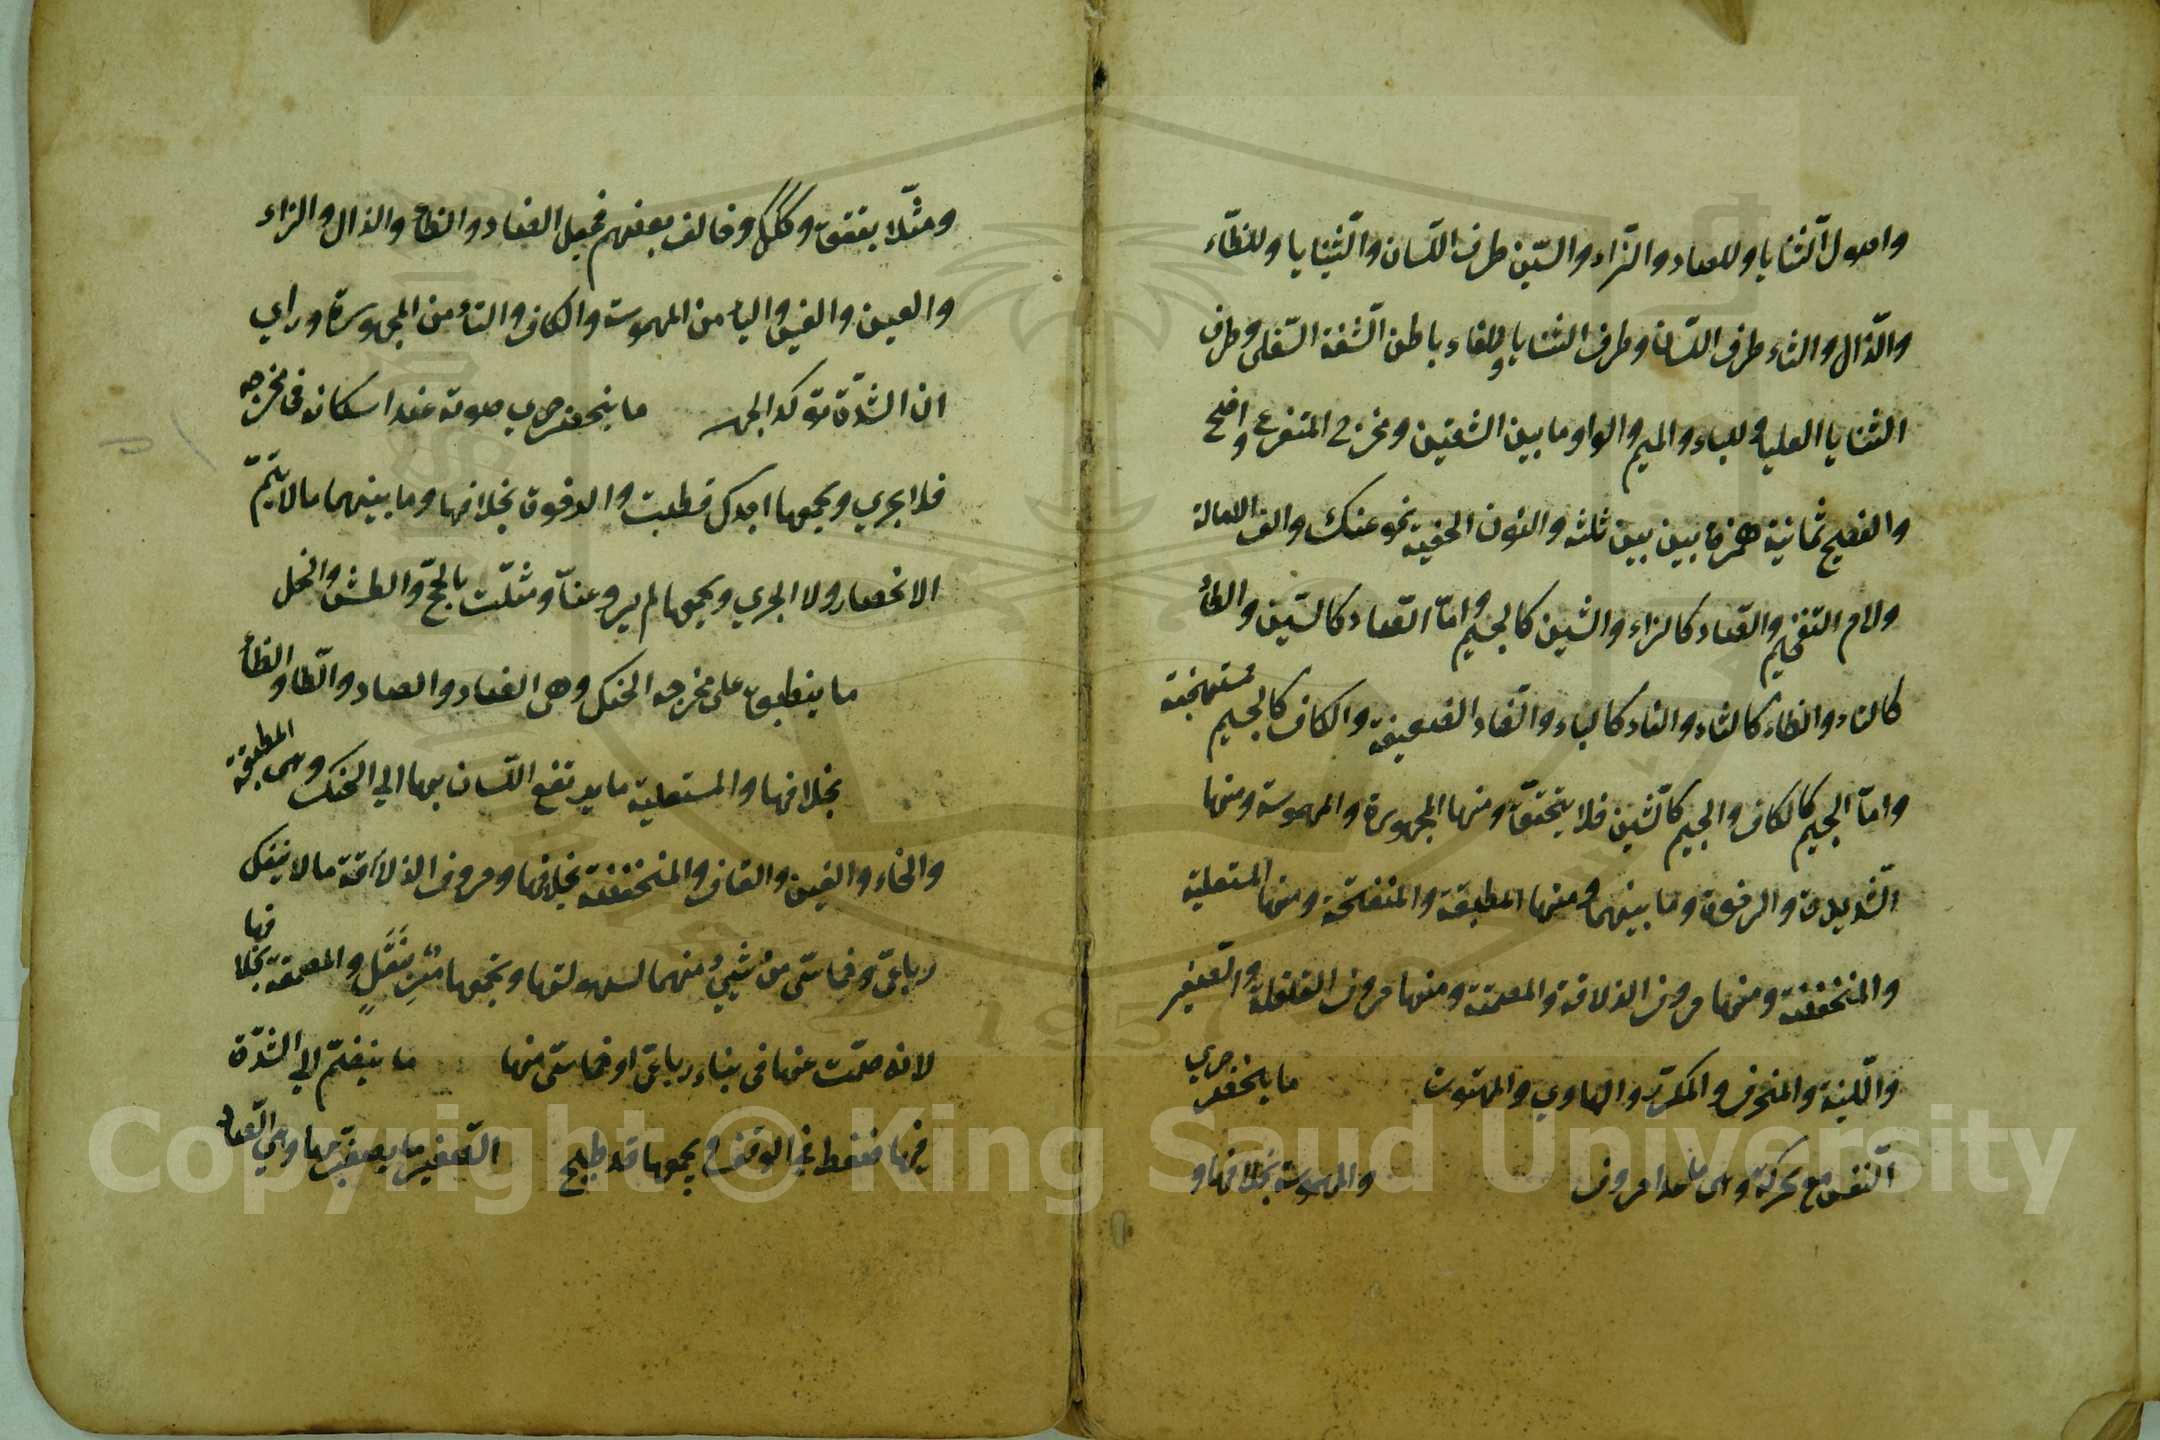 واصول الثنايا وللصاد والزاء والسين طرف اللسان والثنايا وللظاء
والذال والثاء طرف اللسان وطرف الثنايا وللفاء باطن الشفة السفلى وطرف
الثنايا العليا وللباء والميم والواو ما بين الشفتين ومخرج المتفرع واضح
والفصيح ثمانية همزة بين بين ثلثة والنون الخفية نحو عنك والف الامالة
ولام التفخيم والصاد كالزاء والشين كالجيم واما الصاد كالسين والطاء
كالتاء والظاء كالثاء والفاء كالباء والضاد الضعيفة والكاف كالجيم مستهجنة
واما الجيم كالكاف والجيم كالشين فلا يتحقق ومنها المجهورة والمهموسة ومنها
الشديدة والرخوة وما بينهما ومنها المطبقة والمنفتحة ومنها المستعلية
والمنخفضة ومنها حروف الذلاقة والمصمتة ومنها حروف القلقلة والصفير
واللينة والمنحرف والمكرر والهاوي والمهتوت ما ينحصر جري
النفس مع تحركه وهى ما عدا حروف والمهموسة بخلافها و
ومثلا بققق وككك وخالف بعضهم فجعل الضاد والظاء والذال والزاء
والعين والغين والياء من المهموسة والكاف والتاء من المجهورة وراي
ان الشدة توكد الجهر ما ينحصر جري صوته عند اسكانه في مخرجه
فلا يجري ويجمعها اجدك قطبت والرخوة بخلافها وما بينهما ما لا يتم
الانحصار ولا الجري ويجمعها لم يرو عنا ومثلت بالحج والطش والخل
ما ينطبق على مخرجه الحنك وهى الضاد والصاد والطا والظاء
بخلافها والمستعلية ما يرتفع اللسان بها الي الحنك وهى المطبقة
والخاء والغين والقاف والمنخفضة بخلافها وحروف الذلاقة ما لا ينفك
رباعى وخماسى من شيء منهما لسهولتها ويجمعها مر بنفل والمصمتة بخلافها
لانه صمت عنها فى بناء رباعى او خماسى منها ما ينضم الي الشدة
فيها ضغط في الوقف ويجمعها قد طبج الصفير ما يصفر بها وهي الصاد
Copyright © King Saud University
1957